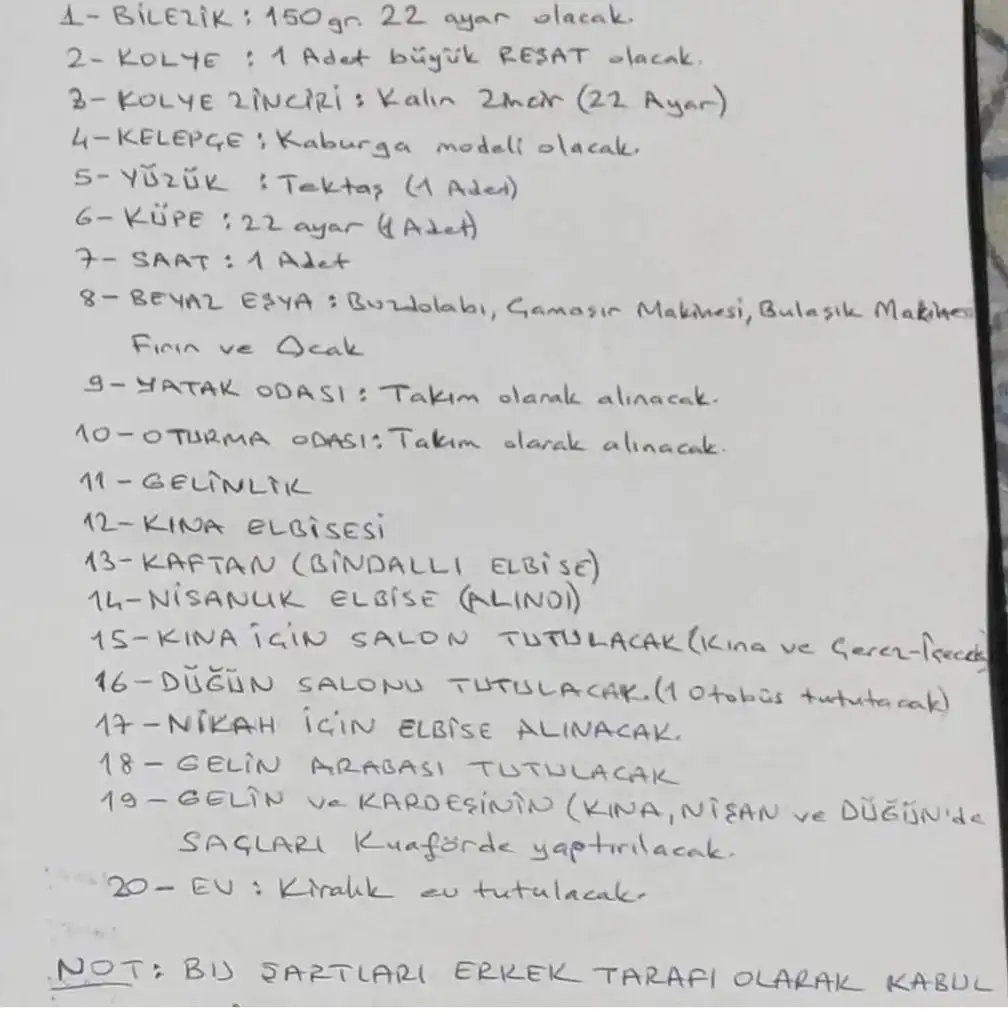 1- BİLEZİK : 150gr. 22 ayar olacak.
2- KOLYE : 1 Adet büyük REŞAT olacak.
3- KOLYE ZİNCİRİ : Kalın Zincir (22 Ayar)
4- KELEPÇE : Kaburga modeli olacak.
5- YÜZÜK : Tektaş (1 Adet)
6- KÜPE : 22 ayar (1 Adet)
7- SAAT : 1 Adet
8- BEYAZ EŞYA : Buzdolabı, Çamaşır Makinesi, Bulaşık Makines
Fırın ve Ocak
9- YATAK ODASI : Takım olarak alınacak.
10- OTURMA ODASI : Takım olarak alınacak.
11- GELİNLİK
12- KINA ELBİSESİ
13- KAFTAN (BİNDALLI ELBİSE)
14- NİSANLIK ELBİSE (ALINDI)
15- KINA İÇİN SALON TUTULACAK (Kına ve Çerez-İçecek
16- DÜĞÜN SALONU TUTULACAK. (1 Otobüs tutulacak)
17- NİKAH İÇİN ELBİSE ALINACAK.
18- GELİN ARABASI TUTULACAK
19- GELİN ve KARDEŞİNİN (KINA, NİŞAN ve DÜĞÜN'de
SAÇLARI Kuaförde yaptırılacak.
20- EV : Kiralık ev tutulacak.
NOT: BU ŞARTLARI ERKEK TARAFI OLARAK KABUL